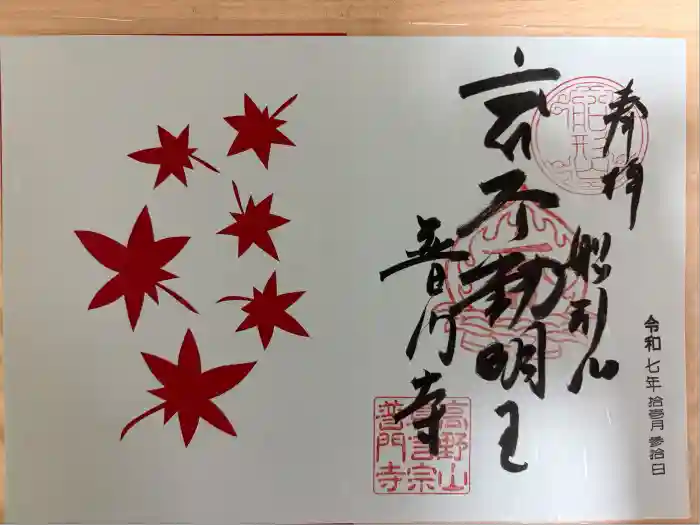 奉拝
船形山
不動明王
普門寺
令和七年 拾壹月 參拾日
高野山
真言宗
普門寺